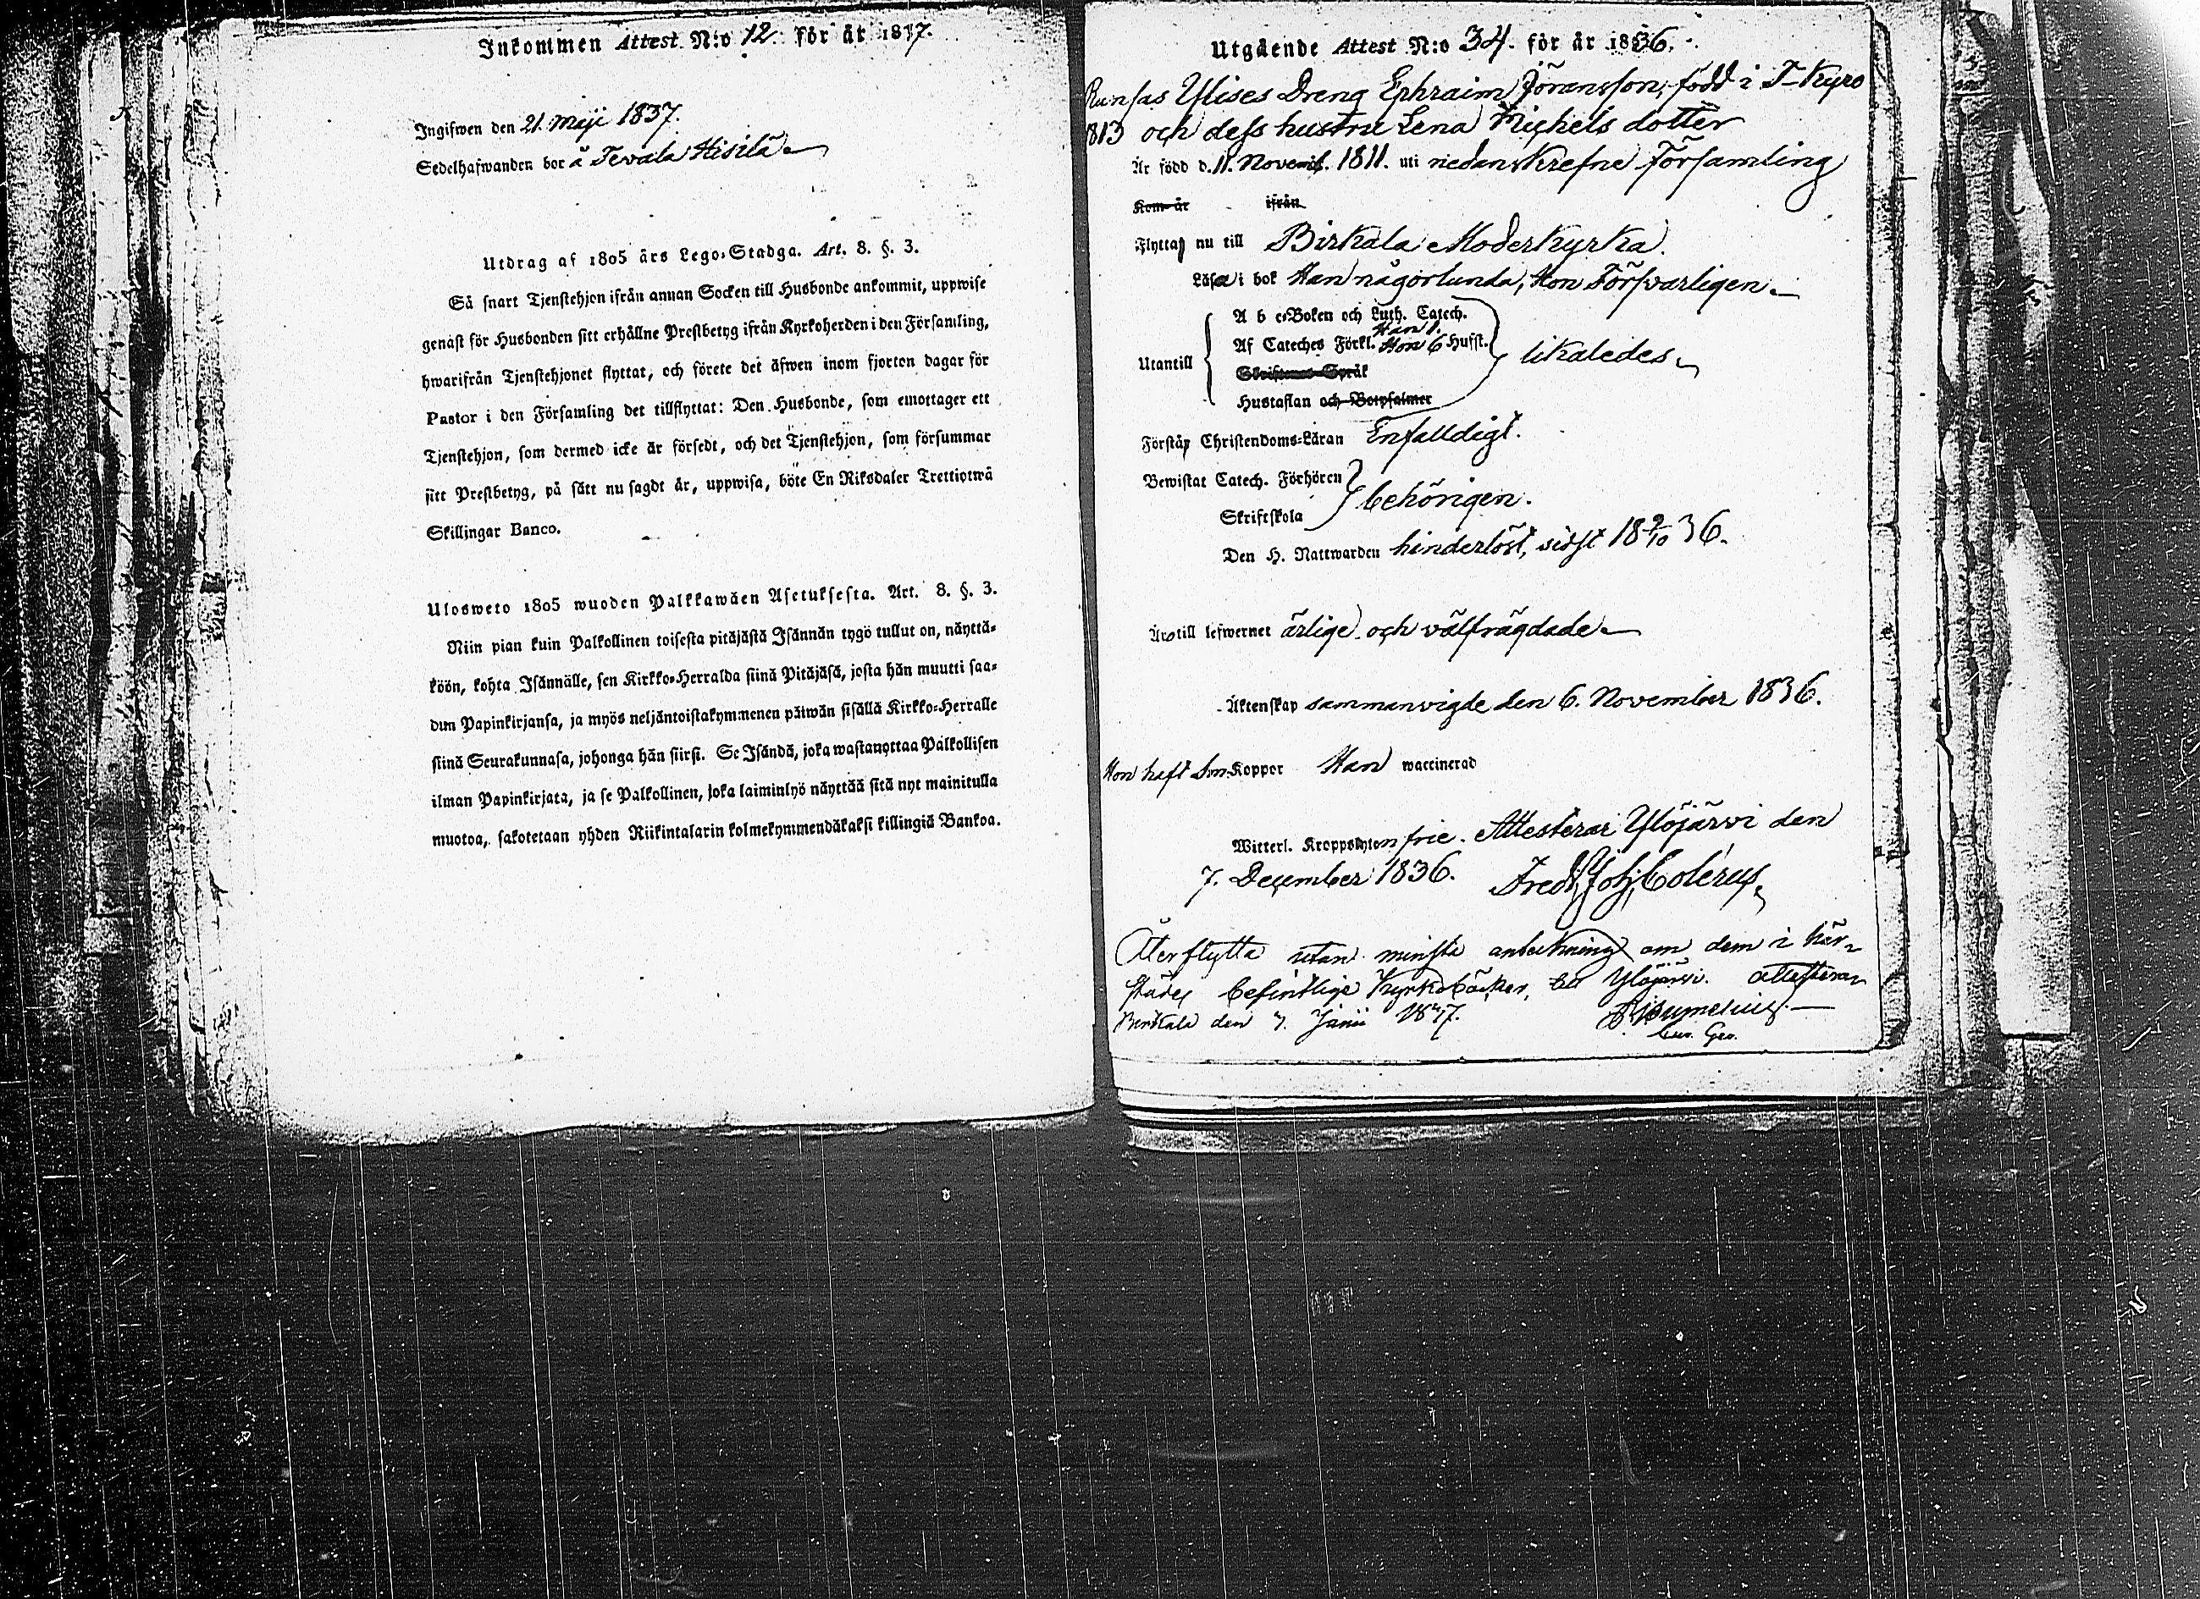 Inkommen Attest N:o 12. för år 1837.
Ingifwen den 21. Maji 1837.
Sedelhafwanden bor å Tevala Hisilä
Utdrag af 1805 års Lego-Stadga. Art. 8. §. 3.
Så snart Tjenstehjon ifrån annan Socken till Husbonde ankommit, uppwise
genast för Husbonden sitt erhållne Prestbetyg ifrån Kyrkoherden i den Församling,
hwarifrån Tjenstehjonet flyttat, och förete det äfwen inom fjorton dagar för
Pastor i den Församling det tillflyttat: Den Husbonde, som emottager ett
Tjenstehjon, som dermed icke är försedt, och det Tjenstehjon, som försummar
sitt Prestbetyg, på sätt nu sagdt är, uppwisa, böte En Riksdaler Trettiotwå
Skillingar Banco.
Ulosweto 1805 wuoden Palkkawäen Asetuksesta. Art. 8. §. 3.
Niin pian kuin Palkollinen toisesta pitäjästä Isännän tygö tullut on, näyttä-
köön, kohta Isännälle, sen Kirkko-Herralda siinä Pitäjäsä, josta hän muutti saa-
dun Papinkirjansa, ja myös neljäntoistakymmenen päiwän sisällä Kirkko-Herralle
siinä Seurakunnasa, johonga hän siirsi. Se Isändä, joka wastanottaa Palkollisen
ilman Papinkirjata, ja se Palkollinen, joka laiminlyö näyttää sitä nyt mainitulla
muotoa, sakotetaan yhden Riikintalarin kolmekymmendäkaksi killingiä Bankoa.
Utgående Attest N:o 34. för år 1836.
Runsas Ylises Dreng Ephraim Jöransson, född i T-Kyro
1813 och dess hustru Lena Michels dotter
Är född d. 11. Novemb. 1811. uti nedanskrefne Församling
Kom år ifrån
Flytta nu till Birkala Moderkyrka.
Läsa i bok Han någorlunda, Hon Försvarligen.
A b c-Boken och Luth. Catech.
Han 1.
Af Cateches Förkl. Hon 6 Hufst.
Utantill likaledes
Skriftenes Språk
Hustaflan och Botpsalmer
Förstå Christendoms-Läran Enfalldigt.
Bewistat Catech. Förhören
behörigen.
Skriftskola
Den H. Nattwarden hinderlöst, sidst 18 9/10 36.
Äro till lefwernet ärlige och välfrägdade
Äktenskap sammanvigde den 6. November 1836.
Hon haft Smkoppor Han waccinerad
Witterl. Kroppslyten frie. Attesterar Ylöjärvi den
7. December 1836. Fredr. Joh. Colérus
Återflytta utan minsta anteckning om dem i här-
städes befintlige Kyrkoböcker, till Ylöjärvi attesterar
Birkala den 7. Junii 1837.